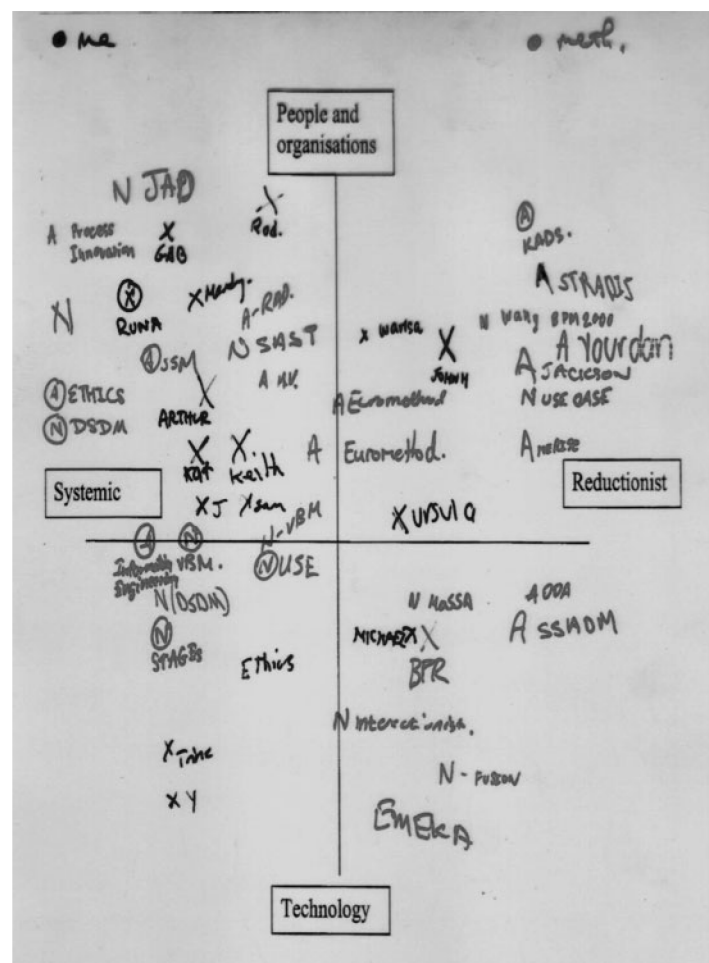 me
meth.
People and
organisations
N JAD
X
Rod.
A Process
Innovation
X
GAB
A
KADS.
A STRADIS
N
X
RUNA
X Mandy.
A-RAD.
N SSAST
X Warisa
X
JOHNH
N Wang BPM2000
A Yourdon
A JACKSON
A JSM
A MV.
A ETHICS
N DSDM
X
ARTHUR
A Euromethod
N USE CASE
X
Kat
X.
Keith
A Euromethod.
A MERISE
Systemic
Reductionist
X J
X Sam
X URSULA
N-VBM
A
Information
Engineering
N
VBM.
N USE
N (DSDM)
N MOSSA
A OOA
A SSADM
N
STAGES
Ethics
MICHAEL X X
BPR
N Interactionist.
X
X Y
N - FUSION
EMEKA
Technology